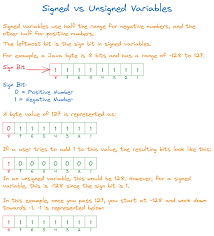 Signed vs Unsigned Variables
Signed variables use half the range for negative numbers, and the
other half for positive numbers.
The leftmost bit is the sign bit in signed variables.
For example, a Java byte is 8 bits and has a range of -128 to 127.
Sign Bit
1 1 1 1 1 1 1 1
8 7 6 5 4 3 2 1
Sign Bit:
0 = Positive Number
1 = Negative Number
A byte value of 127 is represented as:
0 1 1 1 1 1 1 1
8 7 6 5 4 3 2 1
If a user tries to add 1 to this value, the resulting bits look like this:
1 0 0 0 0 0 0 0
8 7 6 5 4 3 2 1
In an unsigned variable, this would be 128. However, for a signed
variable, this is -128 since the sign bit is 1.
In this example, once you pass 127, you start at -128 and work down
towards -1. -1 is represented below:
8 7 6 5 4 3 2 1